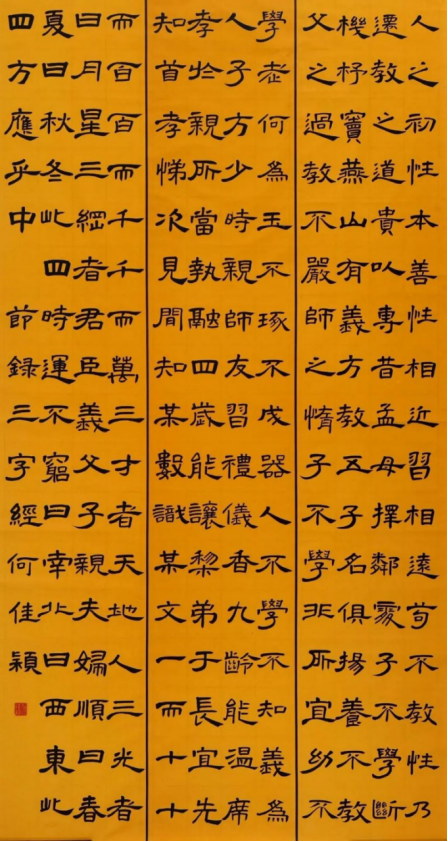 人之初性本善性相近習相遠苟不教性乃
遷教之道貴以專昔孟母擇鄰處子不學斷
機杼竇燕山有義方教五子名俱揚養不教
父之過教不嚴師之惰子不學非所宜幼不
學老何為玉不琢不成器人不學不知義為
人子方少時親師友習禮儀香九齡能溫席
孝於親所當執融四歲能讓梨弟于長宜先
知首孝悌次見聞知某數識某文一而十十
而百百而千千而萬三才者天地人三光者
日月星三綱者君臣義父子親夫婦順曰春
夏曰秋冬此四時運不窮曰南北曰西東此
四方應乎中 節錄三字經何佳穎